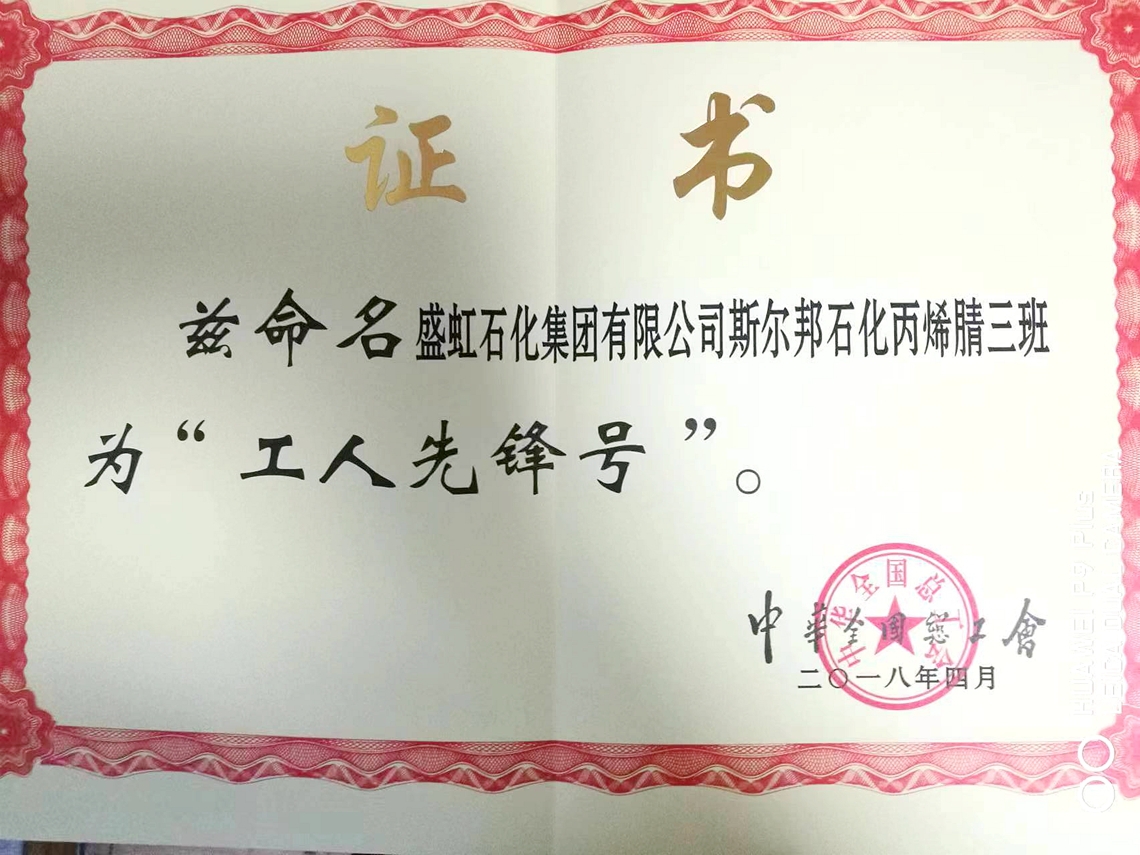 证书
兹命名盛虹石化集团有限公司斯尔邦石化丙烯腈三班
为“工人先锋号”。
中華全国總工會
中华全国总工会
二〇一八年四月
HUAWEI P9 Plus
LEICA DUAL CAMERA